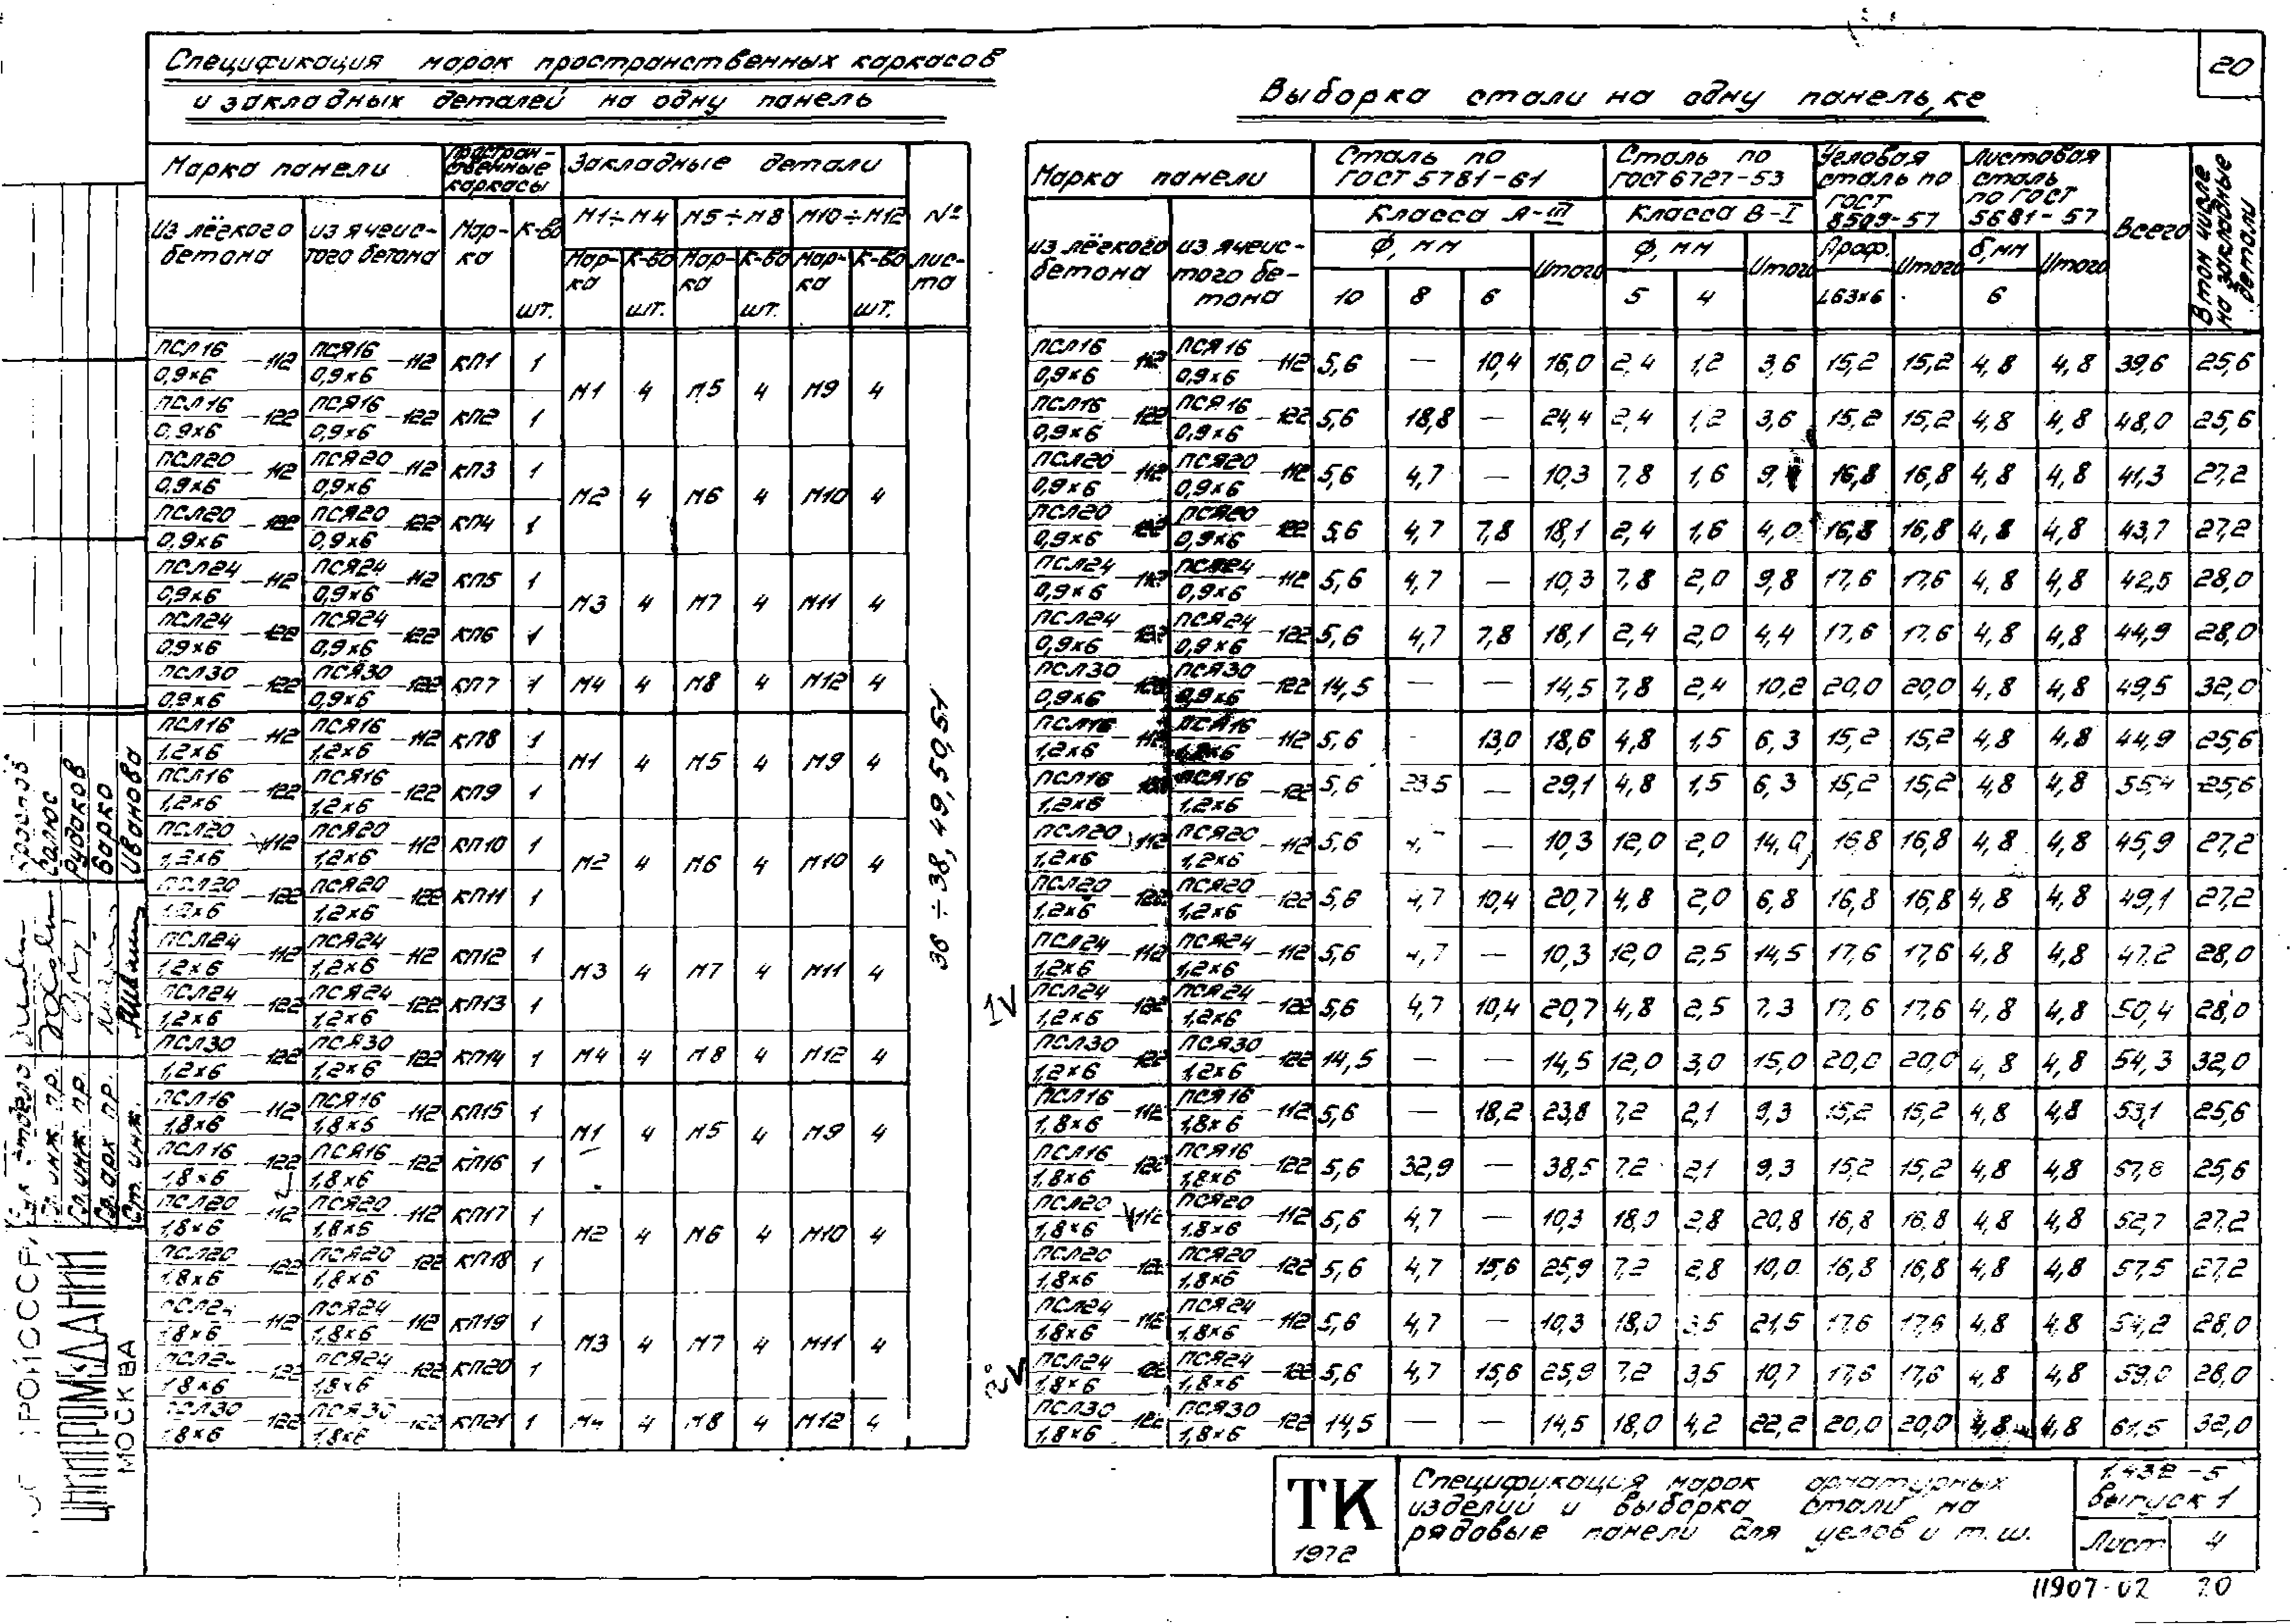 20
Спецификация марок пространственных каркасов
и закладных деталей на одну панель
Марка панели | Пространственные каркасы | Закладные детали | № листа
Из лёгкого бетона | из ячеистого бетона | Марка | К-во шт. | М1÷М4 Марка | К-во шт. | М5÷М8 Марка | К-во шт. | М10÷М12 Марка | К-во шт.
ПСЛ16/0,9×6 -112 | ПСЯ16/0,9×6 -112 | КП1 | 1 | М1 | 4 | М5 | 4 | М9 | 4
ПСЛ16/0,9×6 -122 | ПСЯ16/0,9×6 -122 | КП2 | 1
ПСЛ20/0,9×6 -112 | ПСЯ20/0,9×6 -112 | КП3 | 1 | М2 | 4 | М6 | 4 | М10 | 4
ПСЛ20/0,9×6 -122 | ПСЯ20/0,9×6 -122 | КП4 | 1
ПСЛ24/0,9×6 -112 | ПСЯ24/0,9×6 -112 | КП5 | 1 | М3 | 4 | М7 | 4 | М11 | 4
ПСЛ24/0,9×6 -122 | ПСЯ24/0,9×6 -122 | КП6 | 1
ПСЛ30/0,9×6 -122 | ПСЯ30/0,9×6 -122 | КП7 | 1 | М4 | 4 | М8 | 4 | М12 | 4
ПСЛ16/1,2×6 -112 | ПСЯ16/1,2×6 -112 | КП8 | 1 | М1 | 4 | М5 | 4 | М9 | 4
ПСЛ16/1,2×6 -122 | ПСЯ16/1,2×6 -122 | КП9 | 1
ПСЛ20/1,2×6 -112 | ПСЯ20/1,2×6 -112 | КП10 | 1 | М2 | 4 | М6 | 4 | М10 | 4
ПСЛ20/1,2×6 -122 | ПСЯ20/1,2×6 -122 | КП11 | 1
ПСЛ24/1,2×6 -112 | ПСЯ24/1,2×6 -112 | КП12 | 1 | М3 | 4 | М7 | 4 | М11 | 4
ПСЛ24/1,2×6 -122 | ПСЯ24/1,2×6 -122 | КП13 | 1
ПСЛ30/1,2×6 -122 | ПСЯ30/1,2×6 -122 | КП14 | 1 | М4 | 4 | М8 | 4 | М12 | 4
ПСЛ16/1,8×6 -112 | ПСЯ16/1,8×6 -112 | КП15 | 1 | М1 | 4 | М5 | 4 | М9 | 4
ПСЛ16/1,8×6 -122 | ПСЯ16/1,8×6 -122 | КП16 | 1
ПСЛ20/1,8×6 -112 | ПСЯ20/1,8×6 -112 | КП17 | 1 | М2 | 4 | М6 | 4 | М10 | 4
ПСЛ20/1,8×6 -122 | ПСЯ20/1,8×6 -122 | КП18 | 1
ПСЛ24/1,8×6 -112 | ПСЯ24/1,8×6 -112 | КП19 | 1 | М3 | 4 | М7 | 4 | М11 | 4
ПСЛ24/1,8×6 -122 | ПСЯ24/1,8×6 -122 | КП20 | 1
ПСЛ30/1,8×6 -122 | ПСЯ30/1,8×6 -122 | КП21 | 1 | М4 | 4 | М8 | 4 | М12 | 4
36÷38, 49, 50, 51
Выборка стали на одну панель, кг
Марка панели | Сталь по ГОСТ 5781-61 | Сталь по ГОСТ 6727-53 | Угловая сталь по ГОСТ 8509-57 | Листовая сталь по ГОСТ 5681-57 | Всего | В том числе на закладные детали
из лёгкого бетона | из ячеистого бетона | Класса А-III | Класса В-I
ф, мм | Итого | ф, мм | Итого | Проф. | Итого | б, мм | Итого
10 | 8 | 6 | 5 | 4 | L63×6 | 6
ПСЛ16/0,9×6 -112 | ПСЯ16/0,9×6 -112 | 5,6 | — | 10,4 | 16,0 | 2,4 | 1,2 | 3,6 | 15,2 | 15,2 | 4,8 | 4,8 | 39,6 | 25,6
ПСЛ16/0,9×6 -122 | ПСЯ16/0,9×6 -122 | 5,6 | 18,8 | — | 24,4 | 2,4 | 1,2 | 3,6 | 15,2 | 15,2 | 4,8 | 4,8 | 48,0 | 25,6
ПСЛ20/0,9×6 -112 | ПСЯ20/0,9×6 -112 | 5,6 | 4,7 | — | 10,3 | 7,8 | 1,6 | 9, | 16,8 | 16,8 | 4,8 | 4,8 | 41,3 | 27,2
ПСЛ20/0,9×6 -122 | ПСЯ20/0,9×6 -122 | 5,6 | 4,7 | 7,8 | 18,1 | 2,4 | 1,6 | 4,0 | 16,8 | 16,8 | 4,8 | 4,8 | 43,7 | 27,2
ПСЛ24/0,9×6 -112 | ПСЯ24/0,9×6 -112 | 5,6 | 4,7 | — | 10,3 | 7,8 | 2,0 | 9,8 | 17,6 | 17,6 | 4,8 | 4,8 | 42,5 | 28,0
ПСЛ24/0,9×6 -122 | ПСЯ24/0,9×6 -122 | 5,6 | 4,7 | 7,8 | 18,1 | 2,4 | 2,0 | 4,4 | 17,6 | 17,6 | 4,8 | 4,8 | 44,9 | 28,0
ПСЛ30/0,9×6 -122 | ПСЯ30/0,9×6 -122 | 14,5 | — | — | 14,5 | 7,8 | 2,4 | 10,2 | 20,0 | 20,0 | 4,8 | 4,8 | 49,5 | 32,0
ПСЛ16/1,2×6 -112 | ПСЯ16/1,2×6 -112 | 5,6 | - | 13,0 | 18,6 | 4,8 | 1,5 | 6,3 | 15,2 | 15,2 | 4,8 | 4,8 | 44,9 | 25,6
ПСЛ16/1,2×6 -122 | ПСЯ16/1,2×6 -122 | 5,6 | 23,5 | — | 29,1 | 4,8 | 1,5 | 6,3 | 15,2 | 15,2 | 4,8 | 4,8 | 55,4 | 25,6
ПСЛ20/1,2×6 -112 | ПСЯ20/1,2×6 -112 | 5,6 | 4,7 | — | 10,3 | 12,0 | 2,0 | 14,0 | 16,8 | 16,8 | 4,8 | 4,8 | 45,9 | 27,2
ПСЛ20/1,2×6 -122 | ПСЯ20/1,2×6 -122 | 5,6 | 4,7 | 10,4 | 20,7 | 4,8 | 2,0 | 6,8 | 16,8 | 16,8 | 4,8 | 4,8 | 49,1 | 27,2
ПСЛ24/1,2×6 -112 | ПСЯ24/1,2×6 -112 | 5,6 | 4,7 | — | 10,3 | 12,0 | 2,5 | 14,5 | 17,6 | 17,6 | 4,8 | 4,8 | 47,2 | 28,0
ПСЛ24/1,2×6 -122 | ПСЯ24/1,2×6 -122 | 5,6 | 4,7 | 10,4 | 20,7 | 4,8 | 2,5 | 7,3 | 17,6 | 17,6 | 4,8 | 4,8 | 50,4 | 28,0
ПСЛ30/1,2×6 -122 | ПСЯ30/1,2×6 -122 | 14,5 | — | — | 14,5 | 12,0 | 3,0 | 15,0 | 20,0 | 20,0 | 4,8 | 4,8 | 54,3 | 32,0
ПСЛ16/1,8×6 -112 | ПСЯ16/1,8×6 -112 | 5,6 | — | 18,2 | 23,8 | 7,2 | 2,1 | 9,3 | 15,2 | 15,2 | 4,8 | 4,8 | 53,1 | 25,6
ПСЛ16/1,8×6 -122 | ПСЯ16/1,8×6 -122 | 5,6 | 32,9 | — | 38,5 | 7,2 | 2,1 | 9,3 | 15,2 | 15,2 | 4,8 | 4,8 | 57,8 | 25,6
ПСЛ20/1,8×6 -112 | ПСЯ20/1,8×6 -112 | 5,6 | 4,7 | — | 10,3 | 18,0 | 2,8 | 20,8 | 16,8 | 16,8 | 4,8 | 4,8 | 52,7 | 27,2
ПСЛ20/1,8×6 -122 | ПСЯ20/1,8×6 -122 | 5,6 | 4,7 | 15,6 | 25,9 | 7,2 | 2,8 | 10,0 | 16,8 | 16,8 | 4,8 | 4,8 | 57,5 | 27,2
ПСЛ24/1,8×6 -112 | ПСЯ24/1,8×6 -112 | 5,6 | 4,7 | — | 10,3 | 18,0 | 3,5 | 21,5 | 17,6 | 17,6 | 4,8 | 4,8 | 54,2 | 28,0
ПСЛ24/1,8×6 -122 | ПСЯ24/1,8×6 -122 | 5,6 | 4,7 | 15,6 | 25,9 | 7,2 | 3,5 | 10,7 | 17,6 | 17,6 | 4,8 | 4,8 | 59,0 | 28,0
ПСЛ30/1,8×6 -122 | ПСЯ30/1,8×6 -122 | 14,5 | — | — | 14,5 | 18,0 | 4,2 | 22,2 | 20,0 | 20,0 | 4,8 | 4,8 | 61,5 | 32,0
Рудаков
Варко
Иванова
отдела
Гл. инж. пр.
Гл. арх. пр.
Ст. инж.
ЦНИИПРОМЗДАНИЙ
МОСКВА
ТК
1972
Спецификация марок арматурных
изделий и выборка стали на
рядовые панели для углов и т.ш.
1.432-5
Выпуск 1
Лист 4
11907-02 20